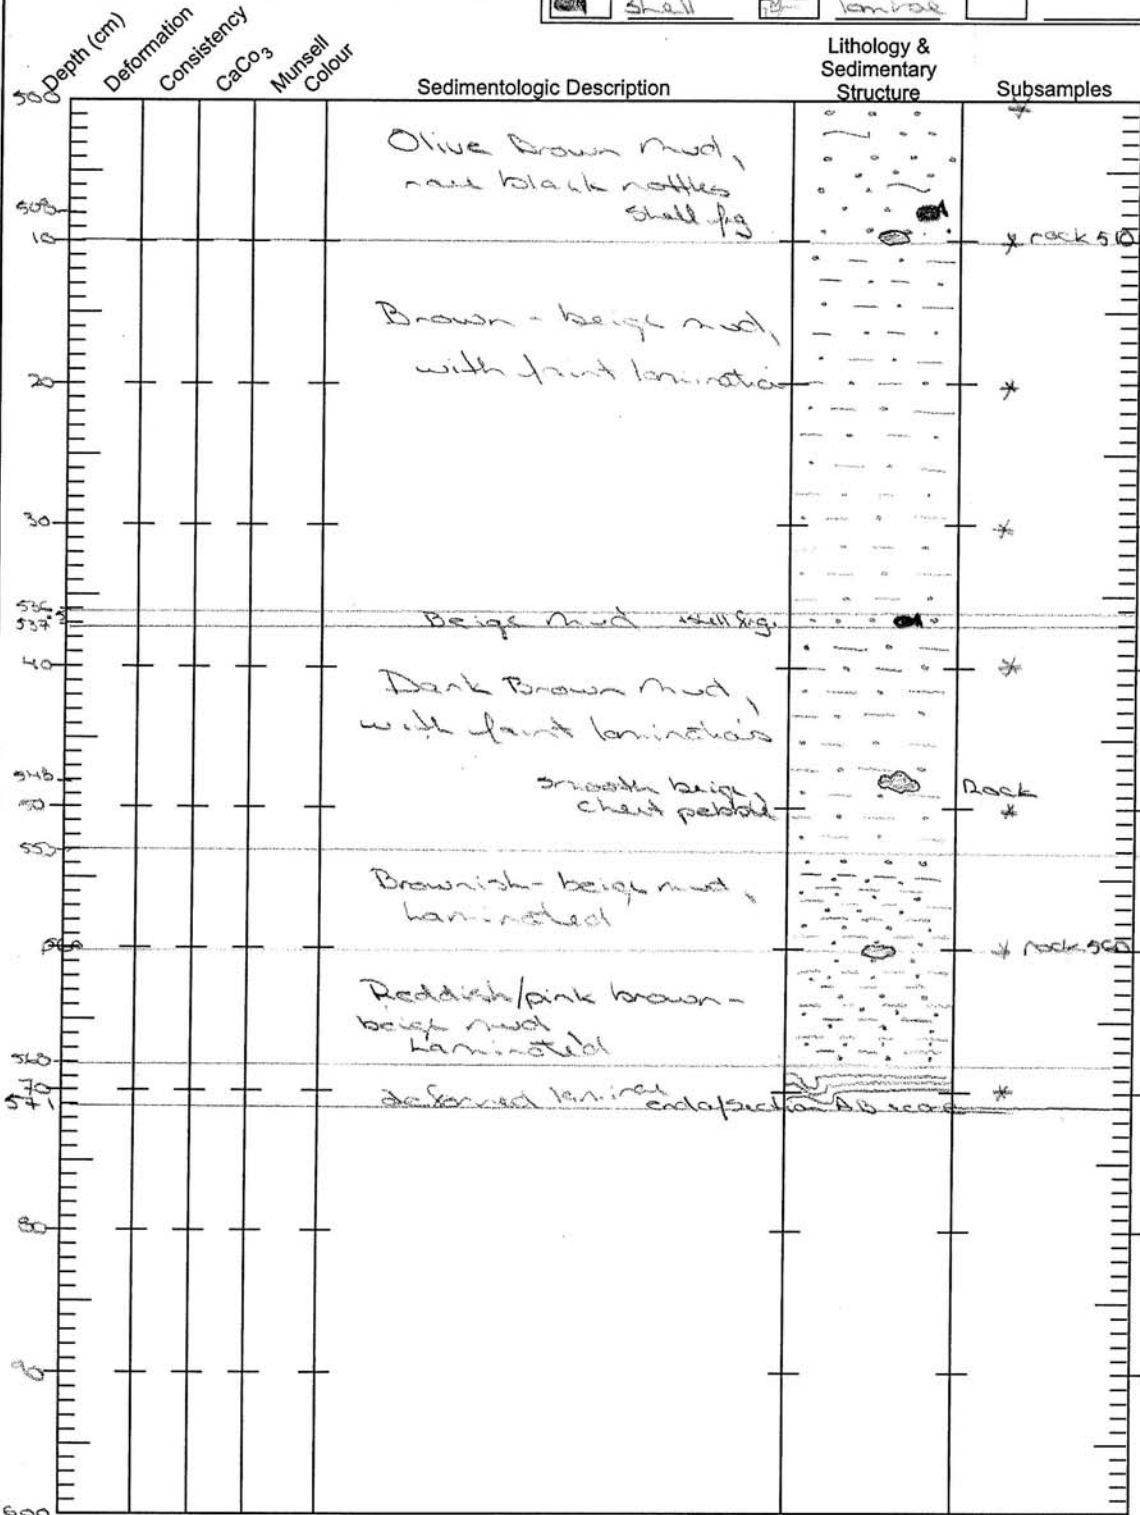 shell laminae
Depth (cm) Deformation Consistency CaCo3 Munsell Colour Sedimentologic Description Lithology & Sedimentary Structure Subsamples
500
Olive Brown Mud,
rare black mottles
508 shell frg
10 rock 510
Brown - beige mud,
with faint laminatio
20
30
536
537.5 Beige Mud shell frg.
40
Dark Brown Mud,
with faint laminations
548 smooth beige, Rock
50 chert pebble
553
Brownish-beige mud,
Laminated
560 rock 560
Reddish/pink brown -
beige mud
Laminated
568
70
571 deformed laminae end of section AB
80
90
600